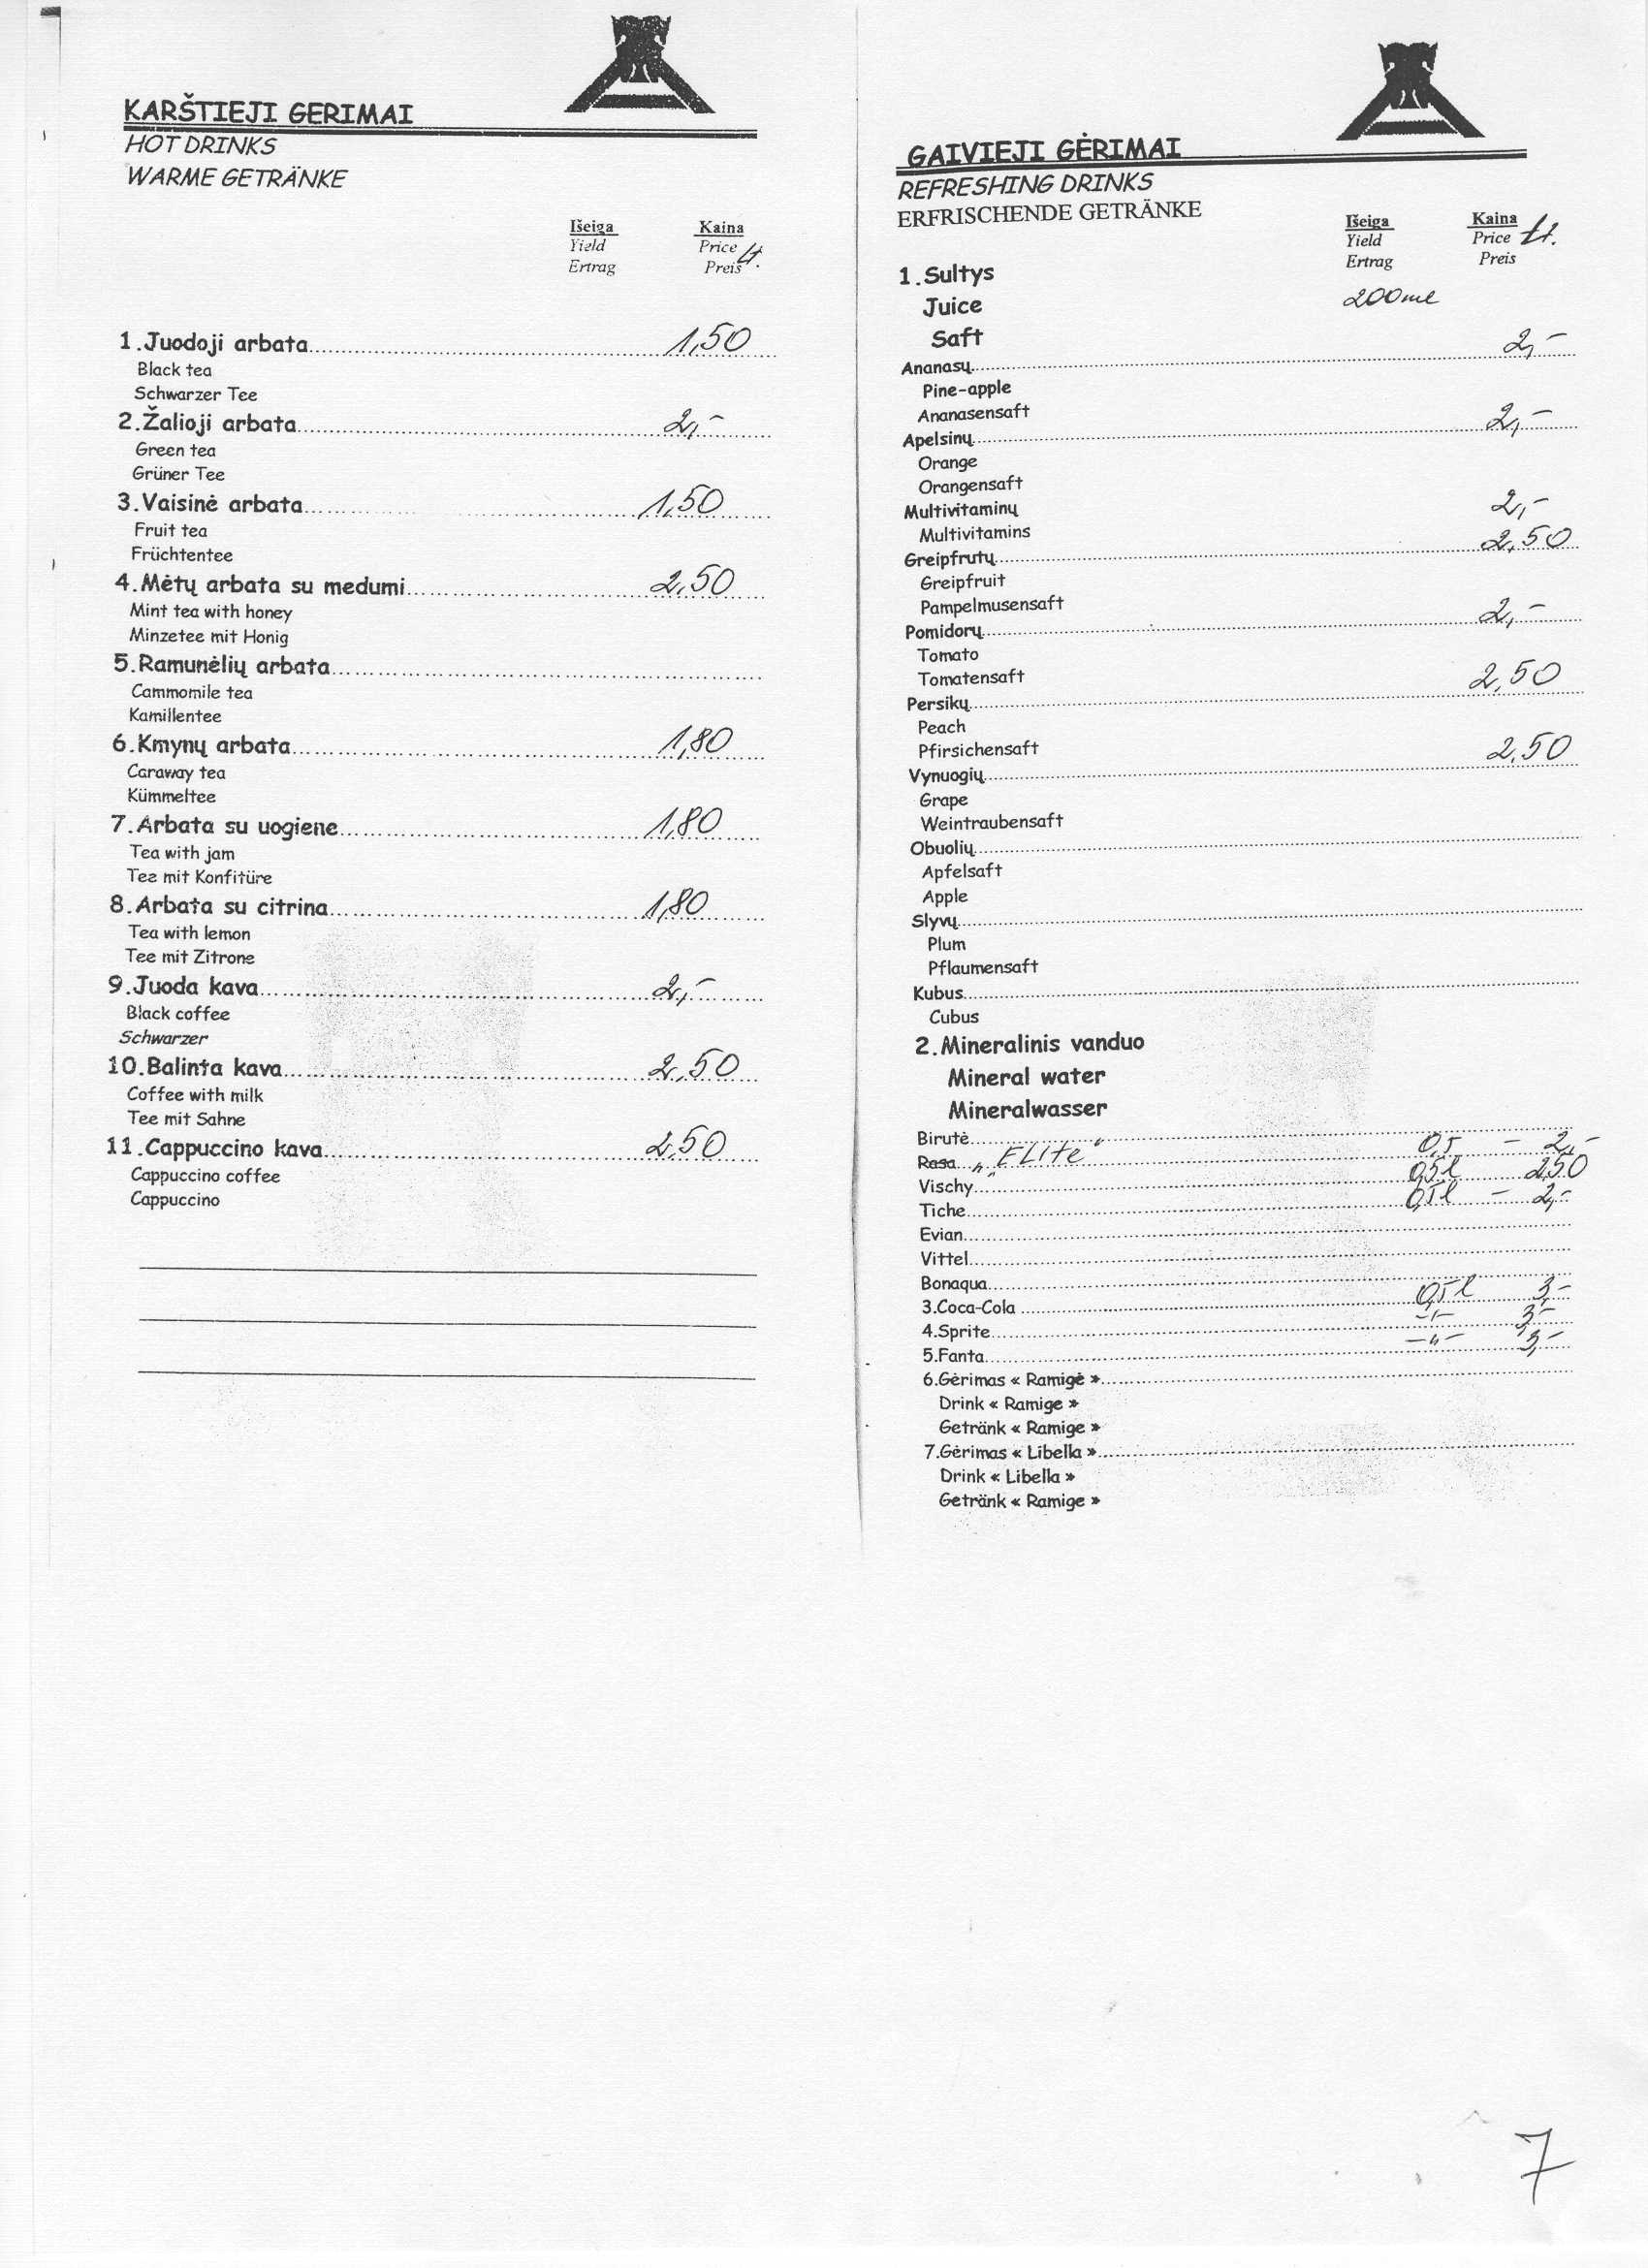 KARŠTIEJI GERIMAI
HOT DRINKS
WARME GETRÄNKE
Išeiga Kaina
Yield Price Lt.
Ertrag Preis
1.Juodoji arbata 1,50
Black tea
Schwarzer Tee
2.Žalioji arbata 2,-
Green tea
Grüner Tee
3.Vaisinė arbata 1,50
Fruit tea
Früchtentee
4.Mėtų arbata su medumi 2,50
Mint tea with honey
Minzetee mit Honig
5.Ramunėlių arbata
Cammomile tea
Kamillentee
6.Kmynų arbata 1,80
Caraway tea
Kümmeltee
7.Arbata su uogiene 1,80
Tea with jam
Tee mit Konfitüre
8.Arbata su citrina 1,80
Tea with lemon
Tee mit Zitrone
9.Juoda kava 2,-
Black coffee
Schwarzer
10.Balinta kava 2,50
Coffee with milk
Tee mit Sahne
11.Cappuccino kava 2,50
Cappuccino coffee
Cappuccino
GAIVIEJI GĖRIMAI
REFRESHING DRINKS
ERFRISCHENDE GETRÄNKE
Išeiga Kaina
Yield Price Lt.
Ertrag Preis
1.Sultys
Juice 200ml
Saft
Ananasų 2,-
Pine-apple
Ananasensaft
Apelsinų 2,-
Orange
Orangensaft
Multivitaminų 2,-
Multivitamins
Greipfrutų 2,50
Greipfruit
Pampelmusensaft
Pomidorų 2,-
Tomato
Tomatensaft
Persikų 2,50
Peach
Pfirsichensaft
Vynuogių 2,50
Grape
Weintraubensaft
Obuolių
Apfelsaft
Apple
Slyvų
Plum
Pflaumensaft
Kubus
Cubus
2.Mineralinis vanduo
Mineral water
Mineralwasser
Birutė
Rasa „ELite" 0,5 - 2,-
Vischy 0,5l 2,50
Tiche 0,5l - 2,-
Evian
Vittel
Bonaqua
3.Coca-Cola 0,5l 3,-
4.Sprite -"- 3,-
5.Fanta -"- 3,-
6.Gėrimas « Ramigė »
Drink « Ramige »
Getränk « Ramige »
7.Gėrimas « Libella »
Drink « Libella »
Getränk « Ramige »
7